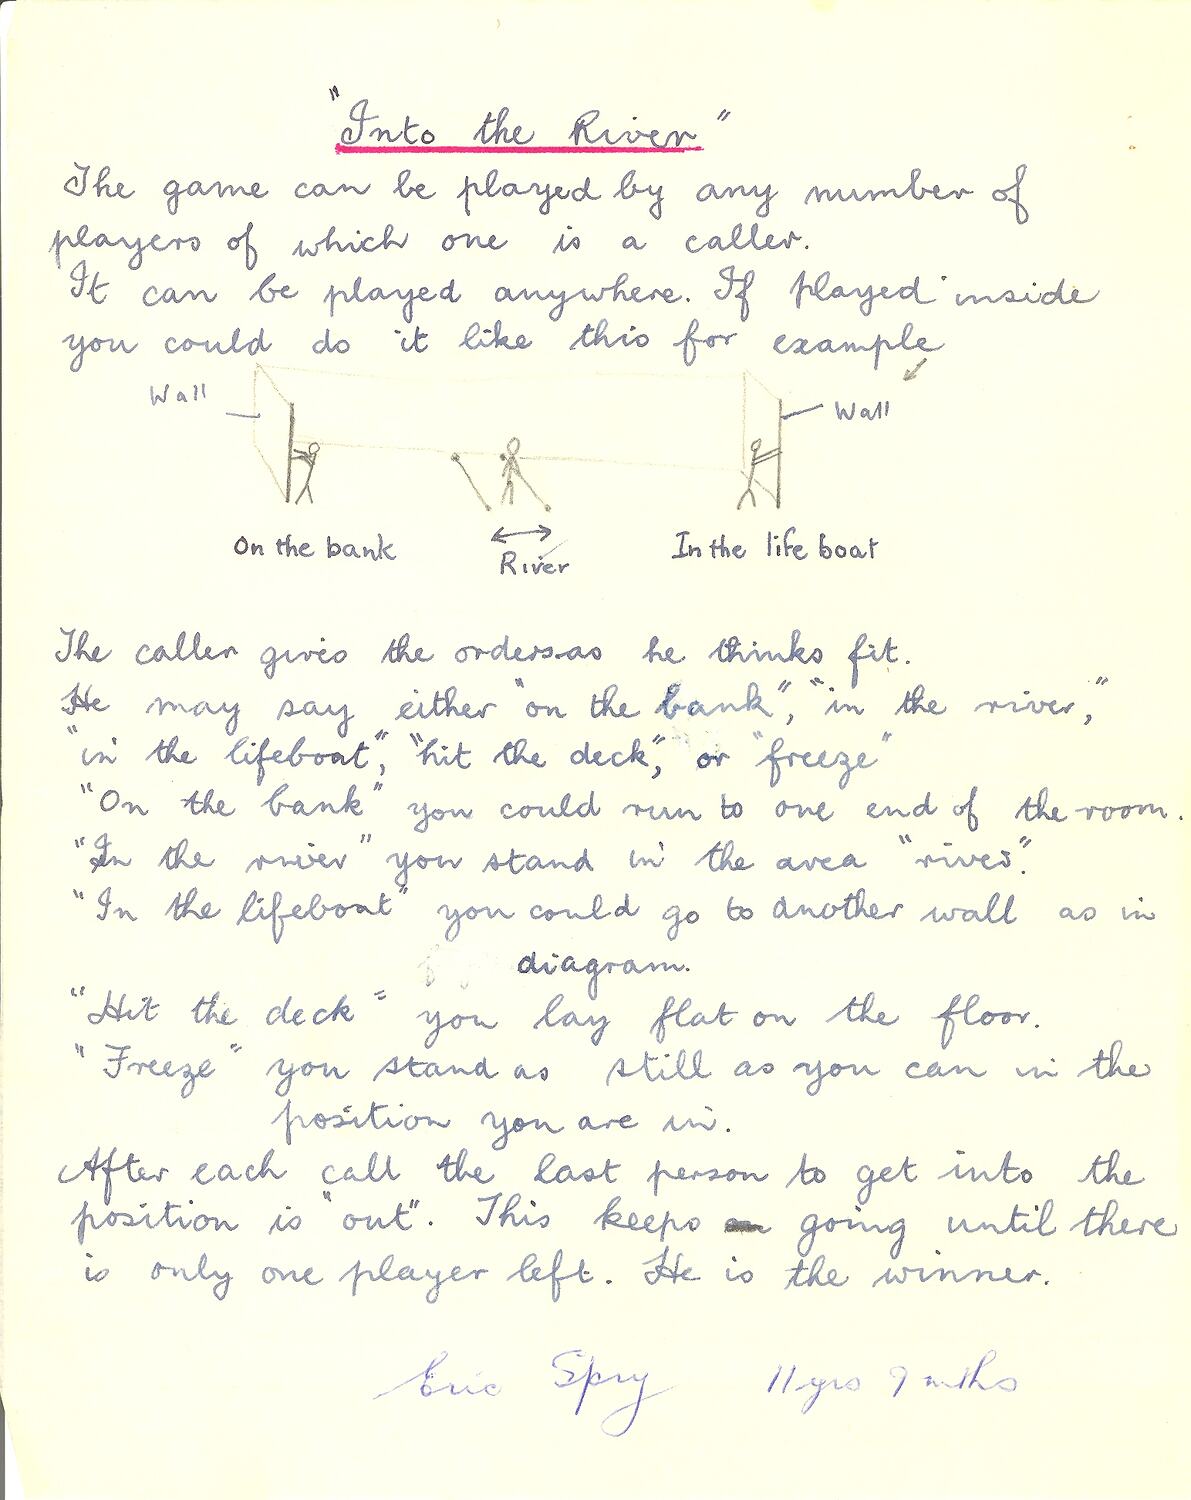 "Into the River"
The game can be played by any number of
players of which one is a caller.
It can be played anywhere. If played inside
you could do it like this for example
Wall
Wall
On the bank
River
In the life boat
The caller gives the orders as he thinks fit.
He may say either "on the bank", "in the river,"
"in the lifeboat", "hit the deck," or "freeze"
"On the bank" you could run to one end of the room.
"In the river" you stand in the area "river".
"In the lifeboat" you could go to another wall as in
diagram.
"Hit the deck" you lay flat on the floor.
"Freeze" you stand as still as you can in the
position you are in.
After each call the last person to get into the
position is "out". This keeps going until there
is only one player left. He is the winner.
Eric Spry 11 yrs 9 mths